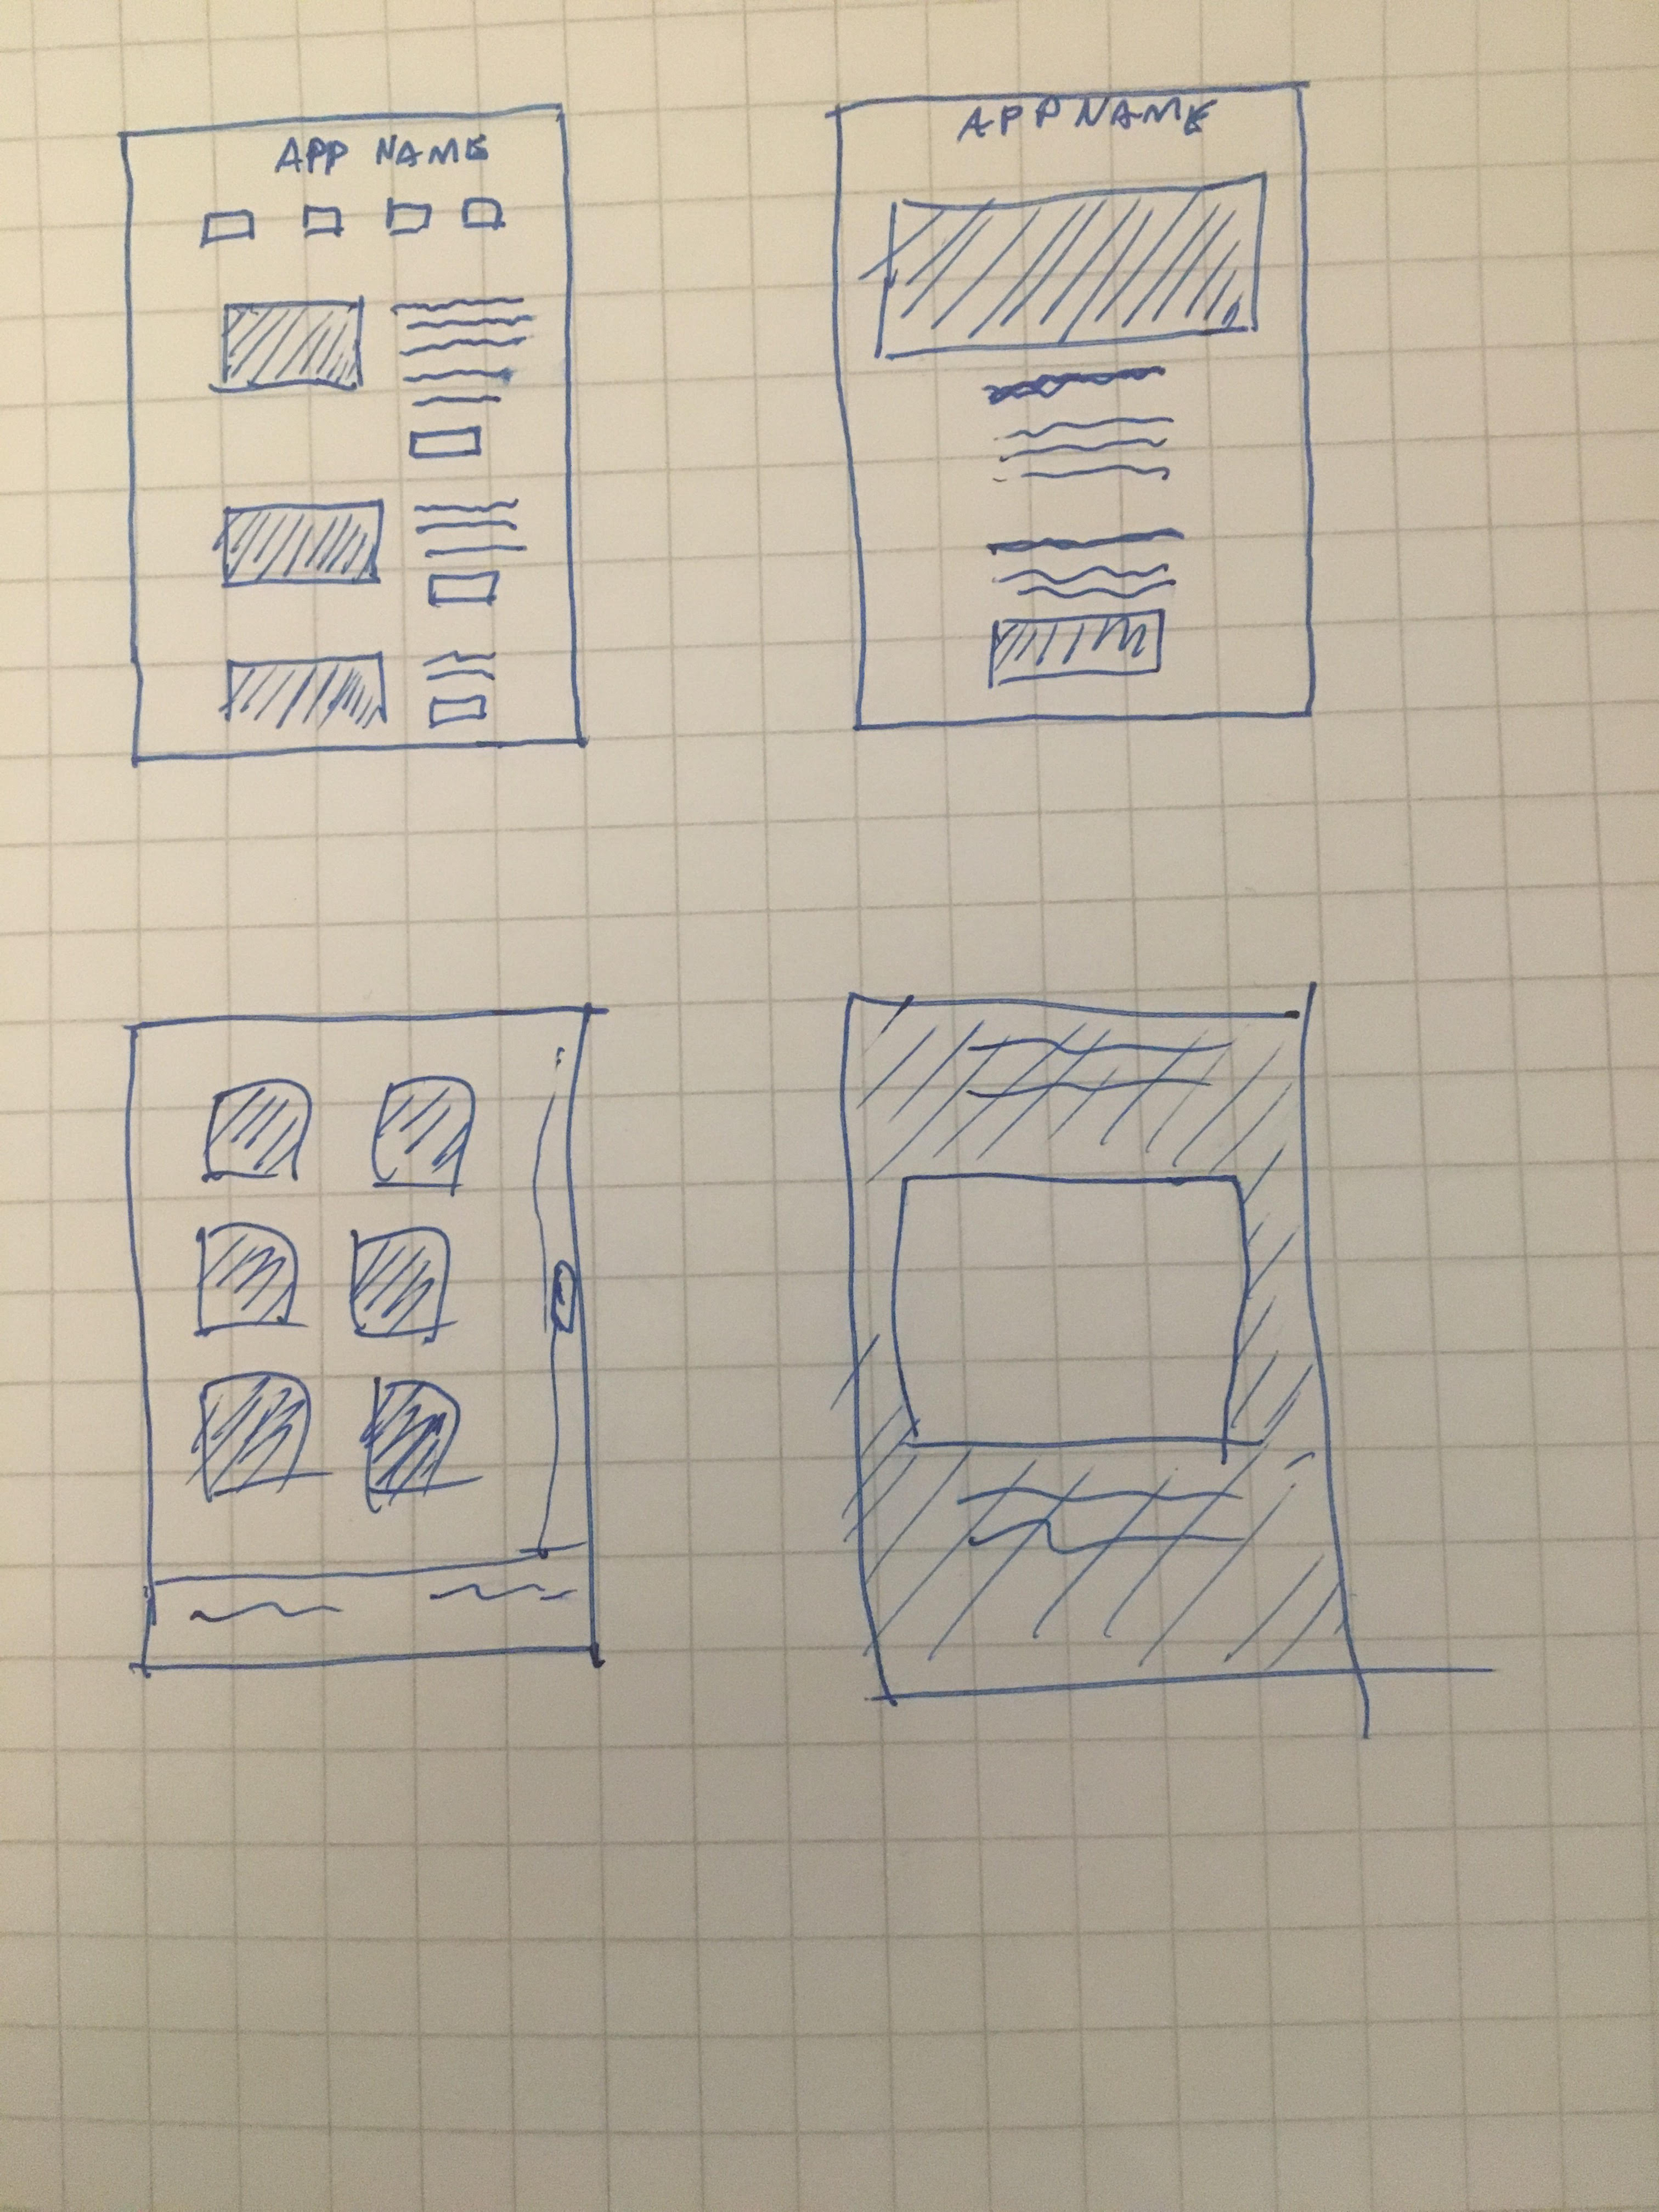 APP NAME
APP NAME